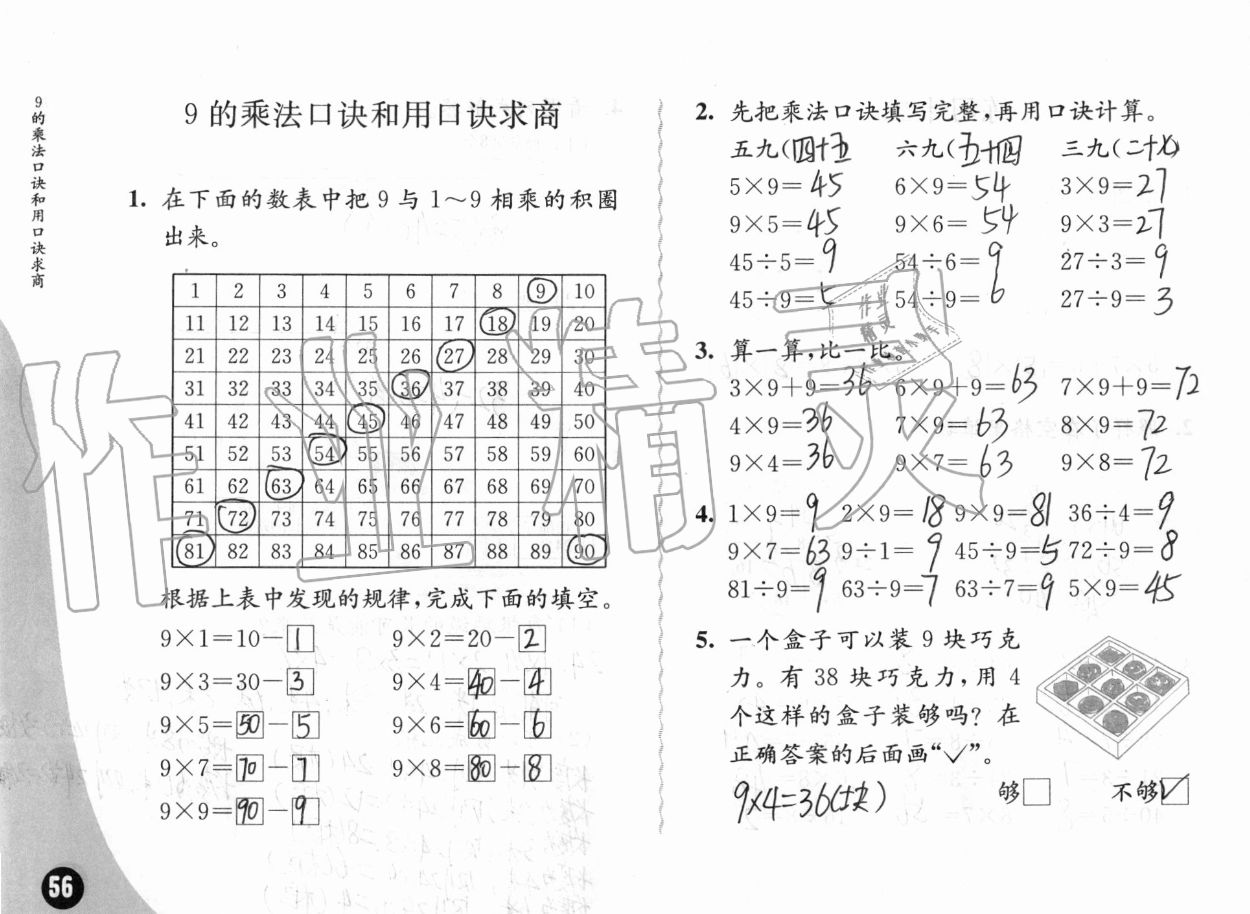 9的乘法口诀和用口诀求商
9 的乘法口诀和用口诀求商
1. 在下面的数表中把 9 与 1～9 相乘的积圈
出来。
1 2 3 4 5 6 7 8 9 10
11 12 13 14 15 16 17 18 19 20
21 22 23 24 25 26 27 28 29 30
31 32 33 34 35 36 37 38 39 40
41 42 43 44 45 46 47 48 49 50
51 52 53 54 55 56 57 58 59 60
61 62 63 64 65 66 67 68 69 70
71 72 73 74 75 76 77 78 79 80
81 82 83 84 85 86 87 88 89 90
根据上表中发现的规律,完成下面的填空。
9×1=10-1 9×2=20-2
9×3=30-3 9×4=40-4
9×5=50-5 9×6=60-6
9×7=70-7 9×8=80-8
9×9=90-9
56
2. 先把乘法口诀填写完整,再用口诀计算。
五九(四十五 六九(五十四 三九(二十七)
5×9=45 6×9=54 3×9=27
9×5=45 9×6=54 9×3=27
45÷5=9 54÷6=9 27÷3=9
45÷9=5 54÷9=6 27÷9=3
3. 算一算,比一比。
3×9+9=36 6×9+9=63 7×9+9=72
4×9=36 7×9=63 8×9=72
9×4=36 9×7=63 9×8=72
4. 1×9=9 2×9=18 9×9=81 36÷4=9
9×7=63 9÷1=9 45÷9=5 72÷9=8
81÷9=9 63÷9=7 63÷7=9 5×9=45
5. 一个盒子可以装 9 块巧克
力。有 38 块巧克力,用 4
个这样的盒子装够吗? 在
正确答案的后面画“✓”。
9×4=36(块) 够□ 不够☑
作业精灵